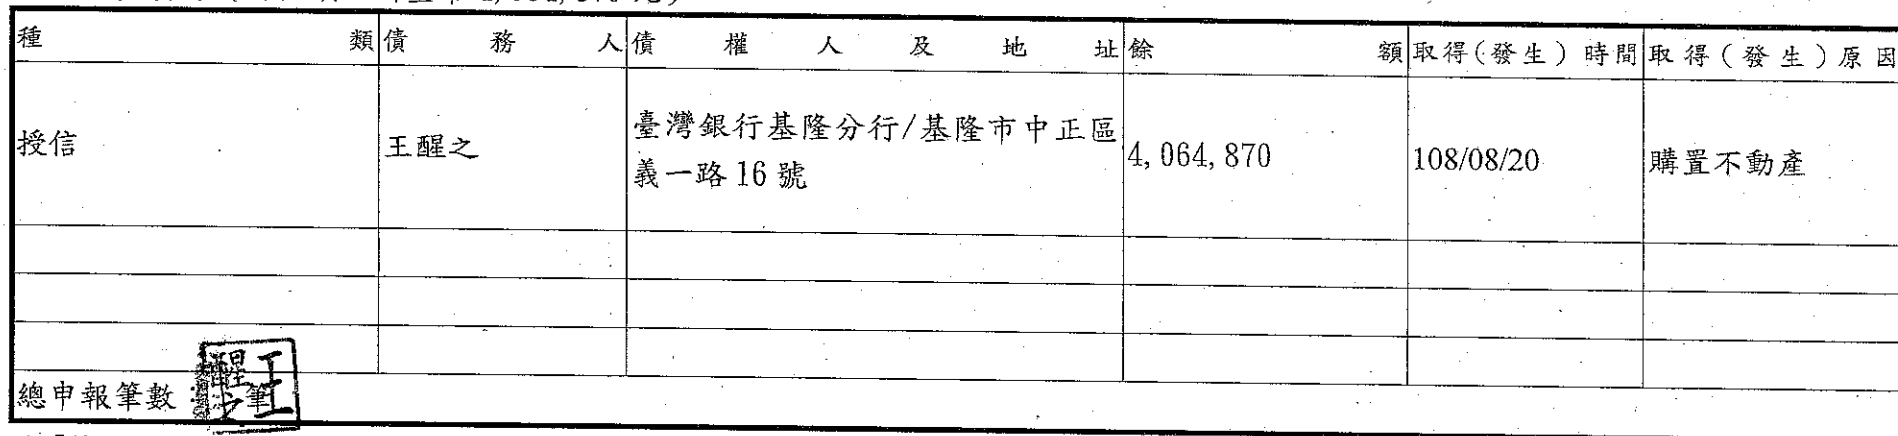 種類 債務人 債權人及地址 餘額 取得(發生)時間 取得(發生)原因
授信 王醒之 臺灣銀行基隆分行/基隆市中正區 4,064,870 108/08/20 購置不動產
義一路16號
總申報筆數: 筆
王醒之